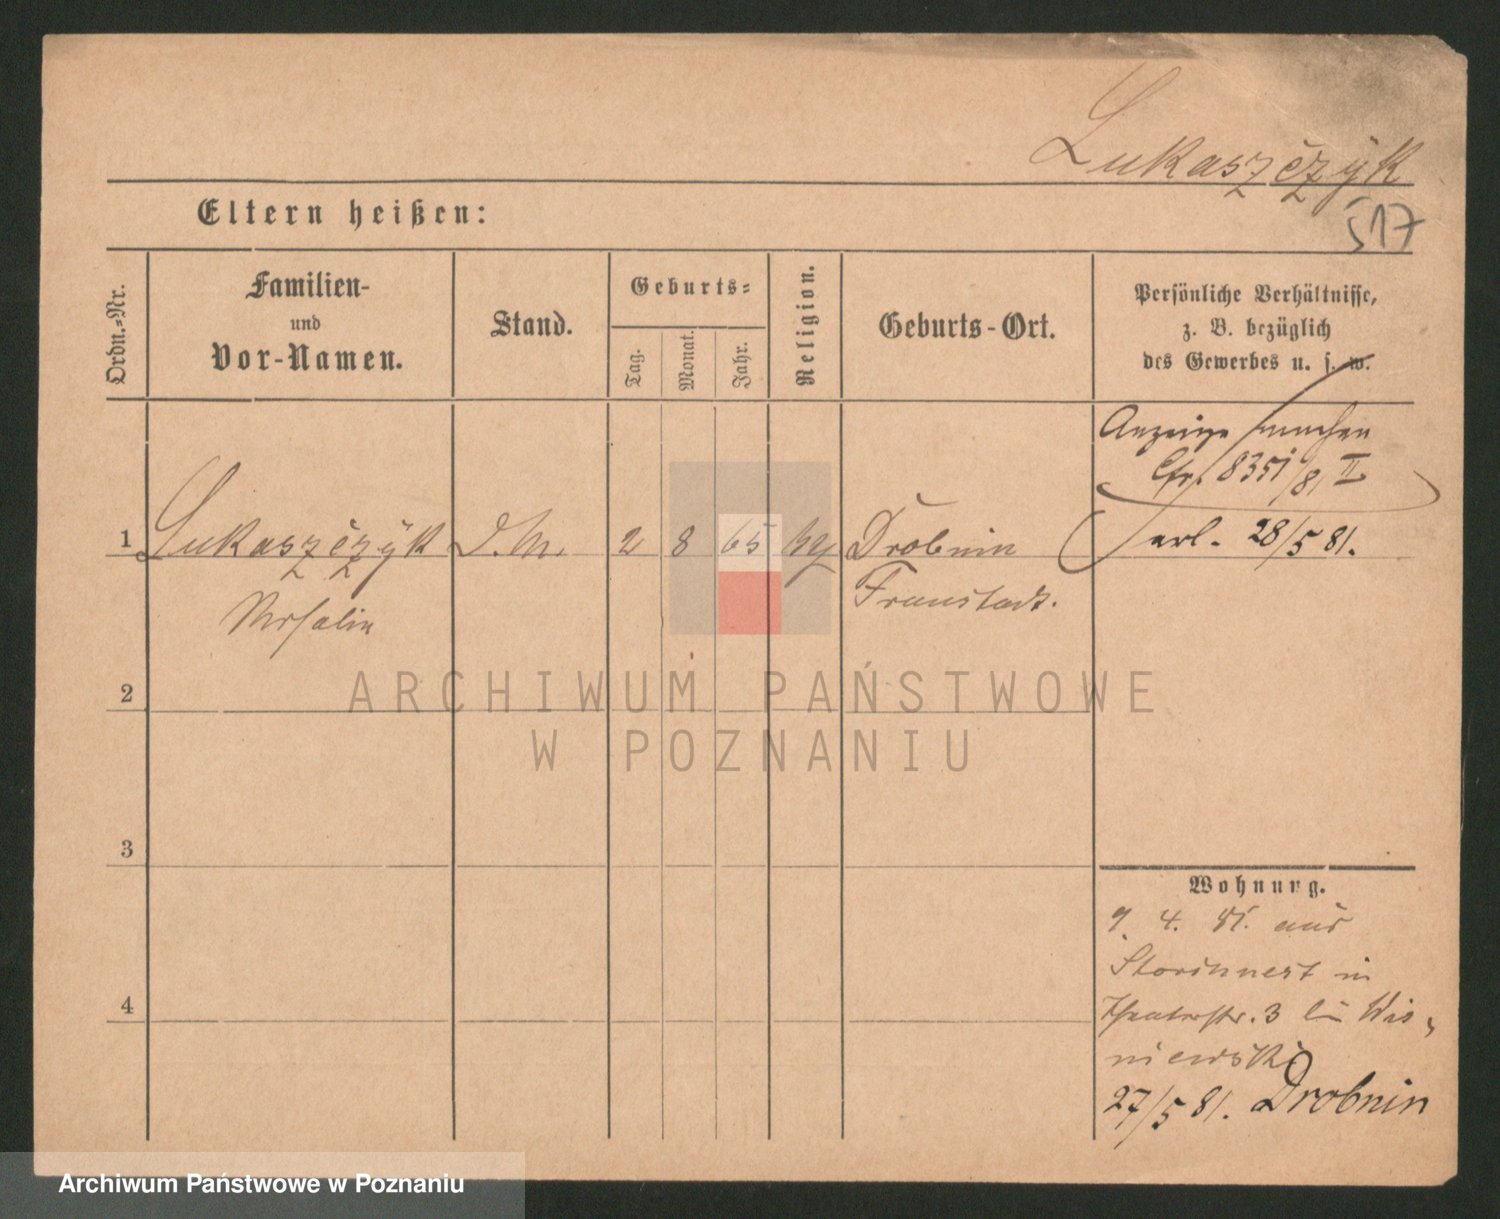 Lukaszčzÿk
517
Eltern heißen:
Ordn.-Nr.
Familien-
und
Vor-Namen.
Stand.
Geburts-
Tag.
Monat.
Jahr.
Religion.
Geburts-Ort.
Persönliche Verhältnisse,
z. B. bezüglich
des Gewerbes u. s. w.
Anzeige machen
8351/81 II
erl. 28/5 81.
1 Lukaszčzÿk D.M. 2 8 65 Drobnin
Fraustadt.
2
3
4
Wohnung.
9. 4. 81. aus
Storchnest in
Theaterstr. 3 bei Wis-
niewski
27/5 81. Drobnin
ARCHIWUM PAŃSTWOWE
W POZNANIU
Archiwum Państwowe w Poznaniu